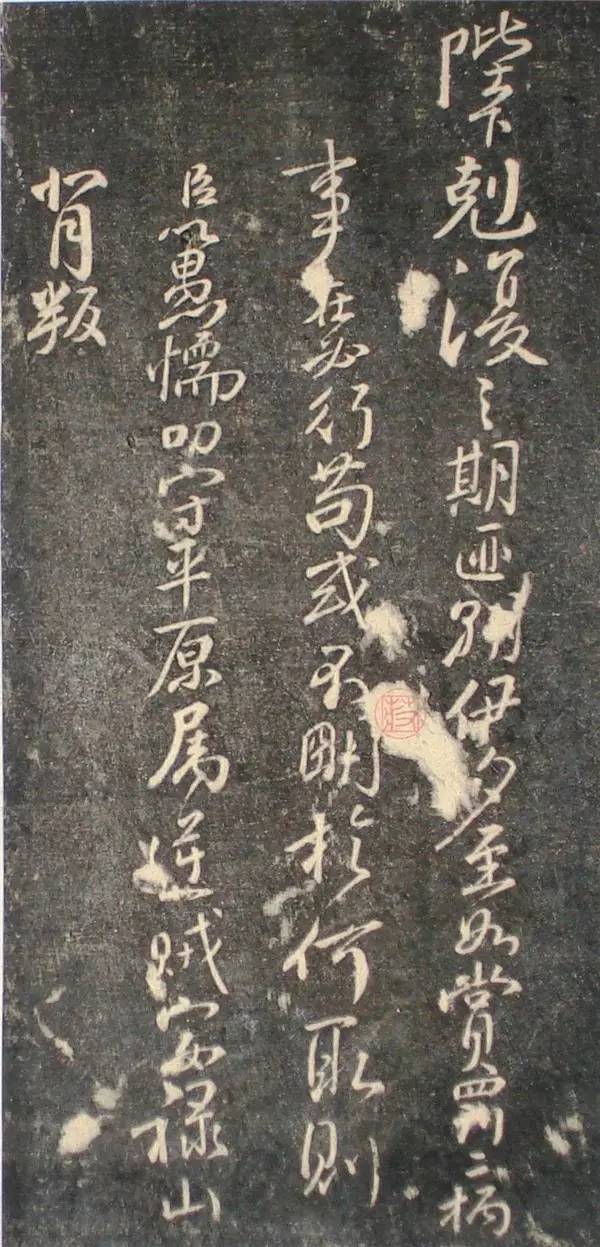 陛下剋復之期匪朝伊夕至如賞罰二柄
事在必行苟或不明於何取則
臣以愚懦叨守平原屬逆賊安祿山
背叛